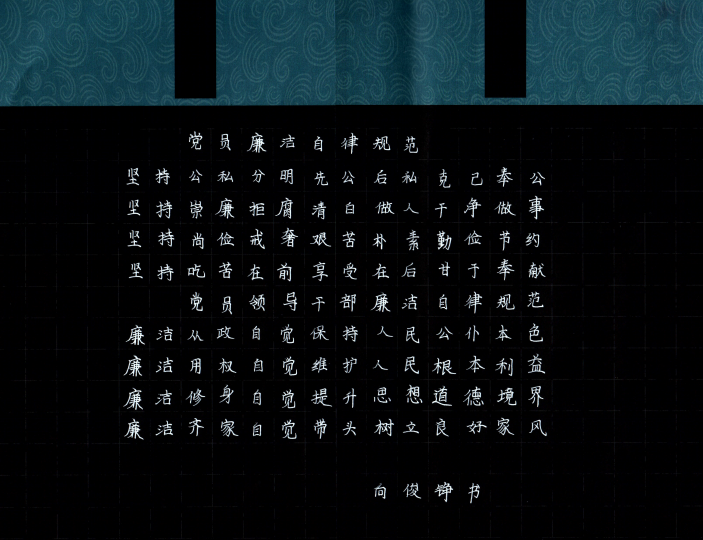 党员廉洁自律规范
坚持公私分明先公后私克己奉公
坚持崇廉拒腐清白做人干净做事
坚持尚俭戒奢艰苦朴素勤俭节约
坚持吃苦在前享受在后甘于奉献
党员领导干部廉洁自律规范
廉洁从政自觉保持人民公仆本色
廉洁用权自觉维护人民根本利益
廉洁修身自觉提升思想道德境界
廉洁齐家自觉带头树立良好家风
向俊铮书